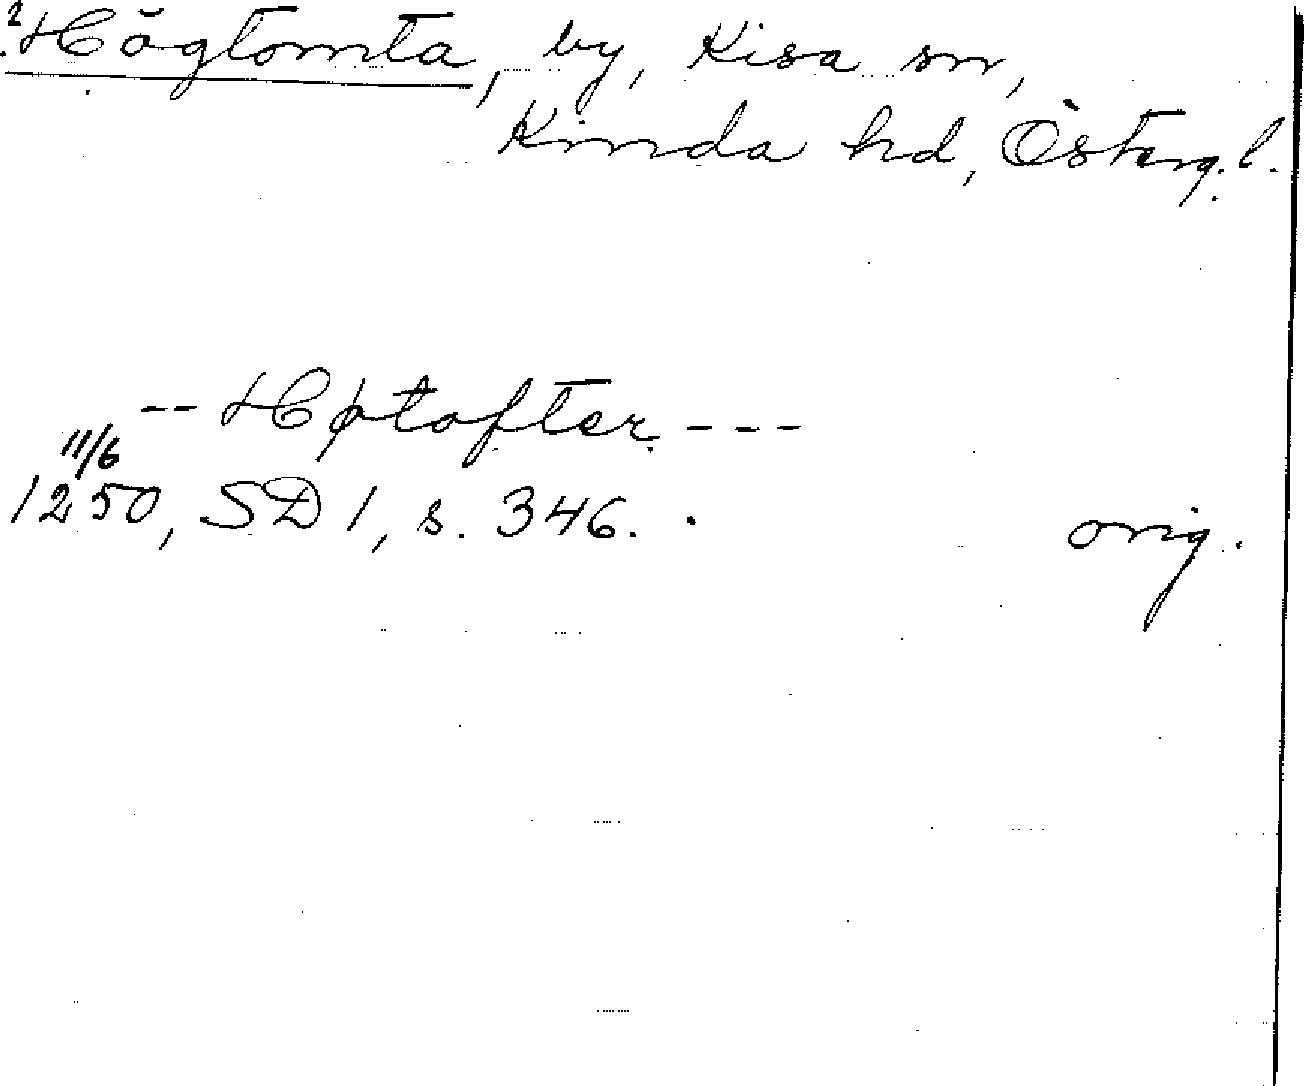 ² Högtomta, by, Kisa sn,
Kinda hd, Österg. l.
-- Høtofter ---
11/6
1250, SD 1, s. 346. orig.